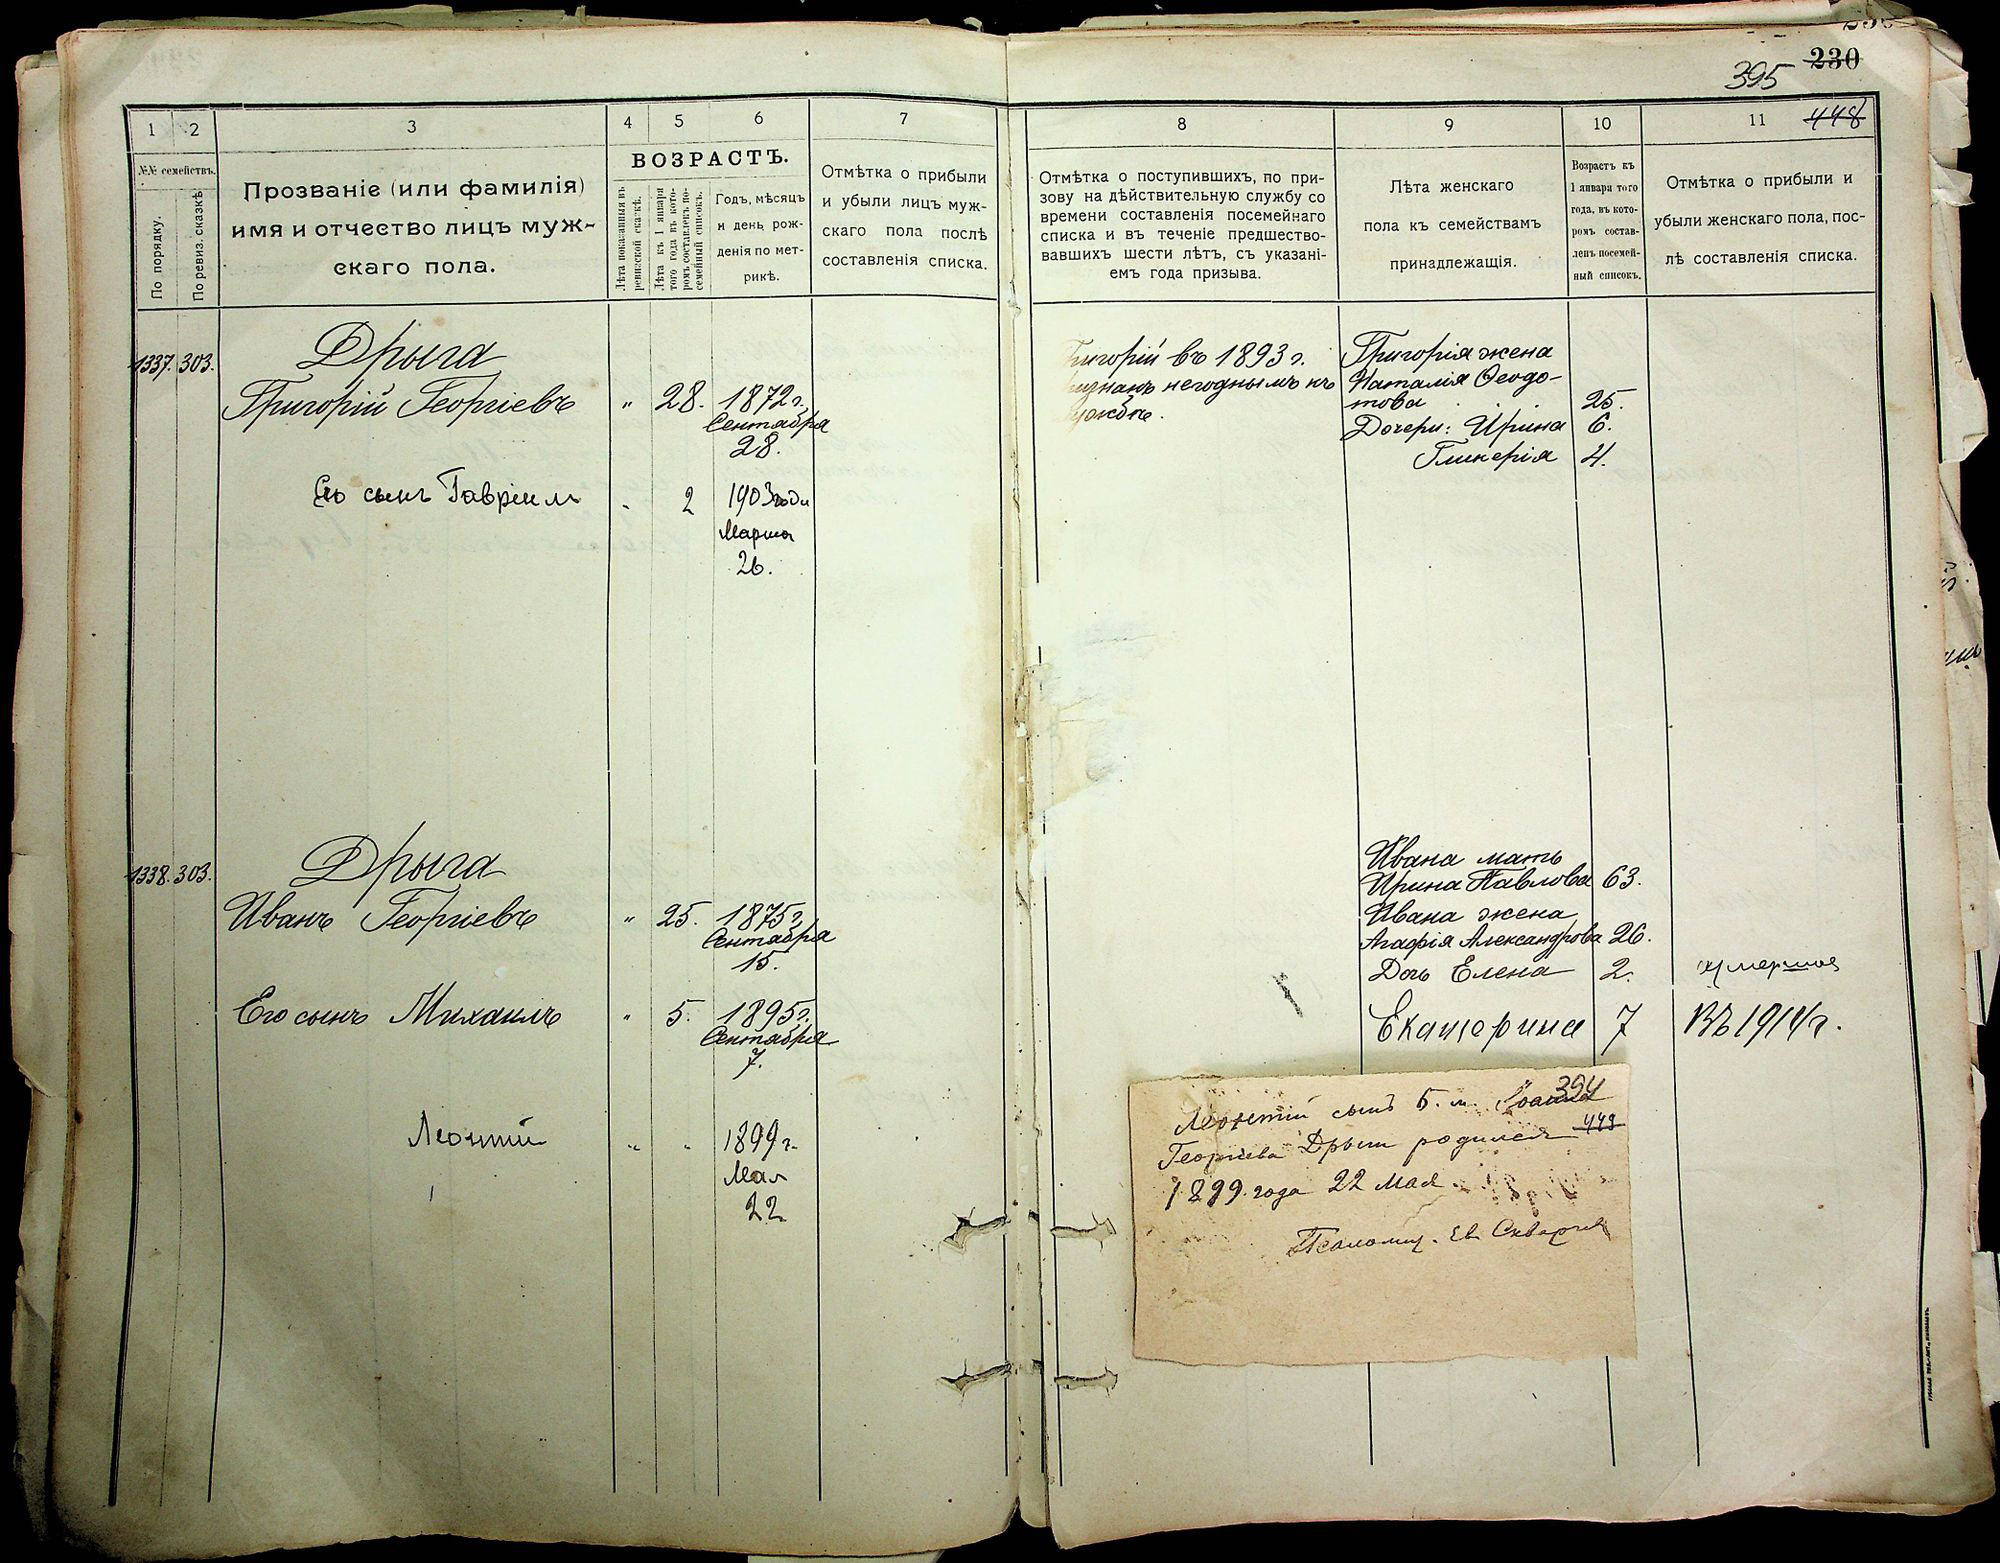 230
395
448
1
2
3
4
5
6
7
8
9
10
11
№№ семействъ.
По порядку.
По ревиз. сказкѣ
Прозваніе (или фамилія)
имя и отчество лицъ муж-
скаго пола.
ВОЗРАСТЪ.
Лѣта показанныя въ
ревизской сказкѣ.
Лѣта къ 1 января
того года въ кото-
ромъ составленъ по-
семейный списокъ.
Годъ, мѣсяцъ
и день рож-
денія по мет-
рикѣ.
Отмѣтка о прибыли
и убыли лицъ муж-
скаго пола послѣ
составленія списка.
Отмѣтка о поступившихъ, по при-
зову на дѣйствительную службу со
времени составленія посемейнаго
списка и въ теченіе предшество-
вавшихъ шести лѣтъ, съ указані-
емъ года призыва.
Лѣта женскаго
пола къ семействамъ
принадлежащія.
Возрастъ къ
1 января того
года, въ кото-
ромъ состав-
ленъ посемей-
ный списокъ.
Отмѣтка о прибыли и
убыли женскаго пола, пос-
лѣ составленія списка.
1337. 303.
Дрыга
Григорій Георгіевъ " 28. 1872 г.
Сентября
28.
Его сынъ Гавріилъ 2 1903 года
Марта
26.
Григорій въ 1893 г.
признанъ негоднымъ къ
службѣ.
Григорія жена
Наталія Ѳеодо-
това 25.
Дочери: Ирина 6.
Гликерія 4.
1338. 303.
Дрыга
Иванъ Георгіевъ " 25. 1875 г.
Сентября
15.
Его сынъ Михаилъ " 5. 1895 г.
Сентября
7.
Леонтій " " 1899 г.
Мая
22
Ивана мать
Ирина Павлова 63.
Ивана жена
Агафія Александрова 26.
Дочь Елена 2. умершая
Екатерина 7 Въ 1914 г.
394
Леонтій сынъ Іоанна
449
Георгіева Дрыги родился
1899 года 22 мая
Псаломщ. Ев